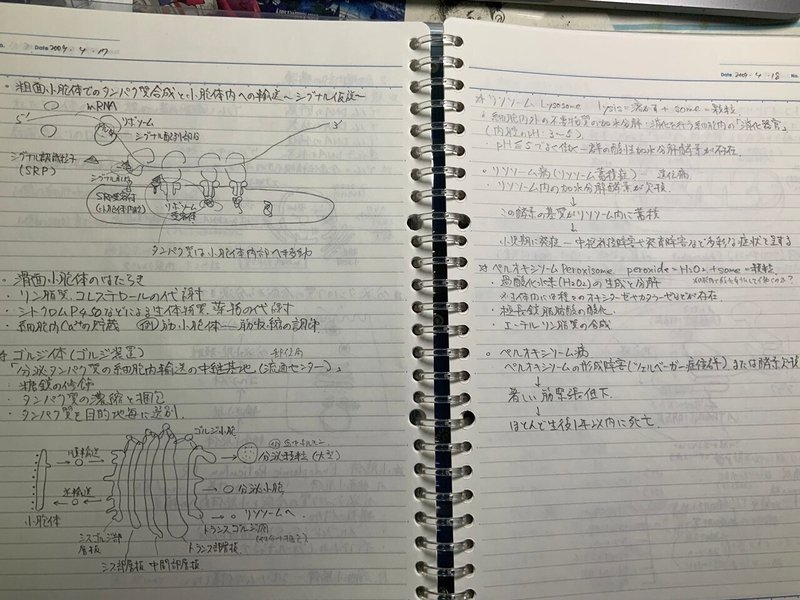 Date 2004・4・17
・粗面小胞体でのタンパク質合成と小胞体内への輸送〜シグナル仮説〜
mRNA
5' リボソーム 3'
シグナル配列部分
シグナル認識粒子
(SRP)
シグナル配列
SRP受容体
(小胞体内腔)
リボソーム
受容体
タンパク質は小胞体内部へ
・滑面小胞体のはたらき
・リン脂質、コレステロールの代謝
・シトクロムP450などによる生体物質、薬物の代謝
・細胞内Ca²⁺の貯蔵 例)筋小胞体 ― 筋収縮の調節
☆ゴルジ体(ゴルジ装置)
「分泌タンパク質の細胞内輸送の中継基地(流通センター)」
・糖鎖の修飾
・タンパク質の濃縮と梱包
・タンパク質を目的地毎に選別.
ゴルジ小胞
順輸送
→分泌顆粒(大型)
逆輸送
→○分泌小胞
→○リソソームへ.
小胞体
シスゴルジ網
層板
トランスゴルジ網
トランス部層板
シス部層板 中間部層板
No.
Date 2004・4・18
☆リソソーム Lysosome lysis=溶かす + some=顆粒
・細胞内外の不要物質の加水分解・消化を行う細胞内の「消化器官」
(内腔のpH:3〜5)
・pH≦5でよく働く一群の酸性加水分解酵素が存在.
○リソソーム病(リソソーム蓄積症) ― 遺伝病
・リソソーム内の加水分解酵素が欠損.
↓
この酵素の基質がリソソーム内に蓄積
↓
小児期に発症 ― 中枢神経障害や発育障害など多彩な症状を呈する
☆ペルオキシソーム Peroxisome peroxide=H₂O₂ + some=顆粒.
・過酸化水素(H₂O₂)の生成と分解
※生体内には種々のオキシダーゼやカタラーゼなどが存在
・極長鎖脂肪酸の酸化.
・エーテルリン脂質の合成
○ペルオキシソーム病
ペルオキシソームの形成障害(ツェルベーガー症候群)または酵素欠損
↓
著しい筋緊張低下.
↓
ほとんど生後1年以内に死亡.